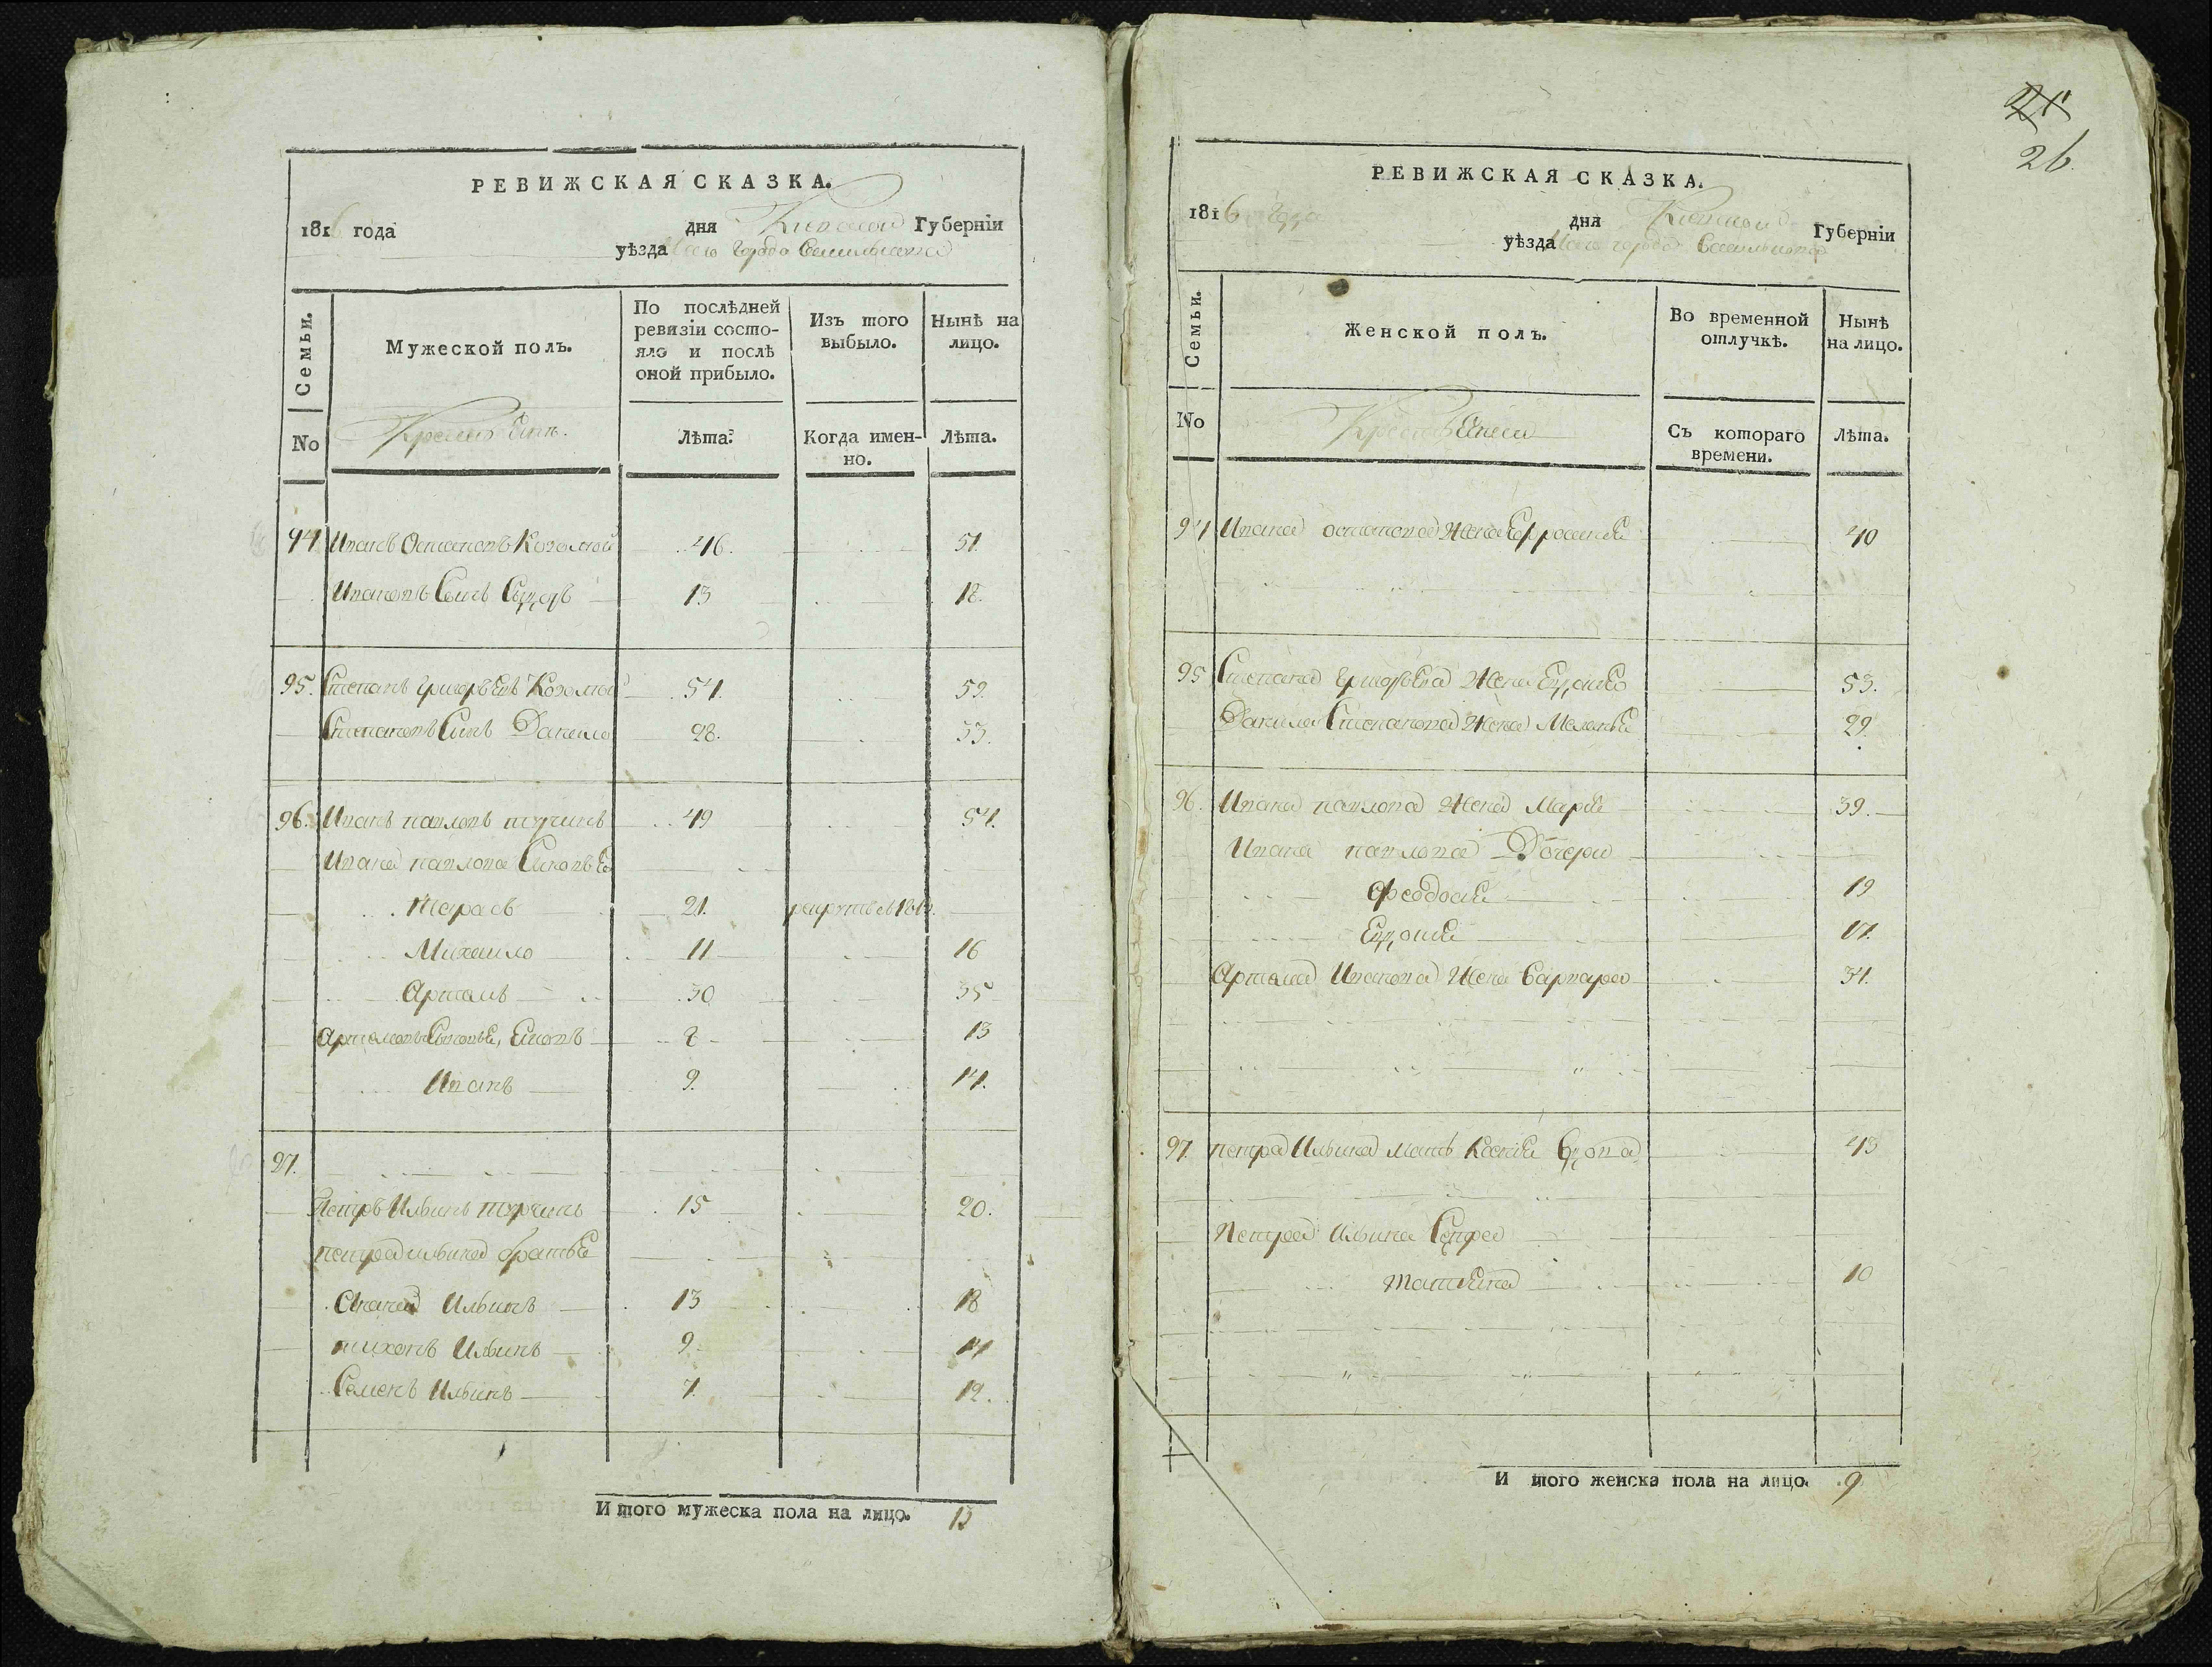 РЕВИЖСКАЯ СКАЗКА.
1816 года дня Киевской Губерніи
уѣзда города Василькова
Семьи.
No
Мужеской полъ.
По послѣдней ревизіи состояло и послѣ оной прибыло.
Изъ того выбыло.
Нынѣ на лицо.
Лѣта.
Когда именно.
Лѣта.
94 Иванъ Остаповъ 46. 51.
Ивановъ Сынъ 13 18.
95. Степанъ Григорьевъ 54. 59.
Степановъ Сынъ Данило 28. 33.
96. Иванъ павловъ турчинъ 49 54.
Ивана павлова Сыновьѣ
Тарасъ 21.
Михайло 11 16
Артемъ 30 35
Артемовы Сыновьѣ, 8 13
Иванъ 9. 14.
97.
Петръ Ильинъ турчинъ 15 20.
петра ильина братьѣ
Ильинъ 13 18
тихонъ Ильинъ 9. 14
Семенъ Ильинъ 7. 12.
Итого мужеска пола на лицо. 13
26.
РЕВИЖСКАЯ СКАЗКА.
1816 года дня Киевской Губерніи
уѣзда города Василькова
Семьи.
No
Женской полъ.
Во временной отлучкѣ.
Нынѣ на лицо.
Съ котораго времени.
Лѣта.
94 Ивана остапова Жена Ефросинія 40
95 Степана Григорьева Жена 53.
Данила Степанова Жена Меланья 29.
96. Ивана павлова Жена Марія 39.
Ивана павлова Дочери
Феодосія 19
17.
Артема Иванова Жена Варвара 34.
97. петра Ильина мать Ксенія Вдова 43
Петра Ильина Сестра
Татьяна 10
Итого женска пола на лицо. 9